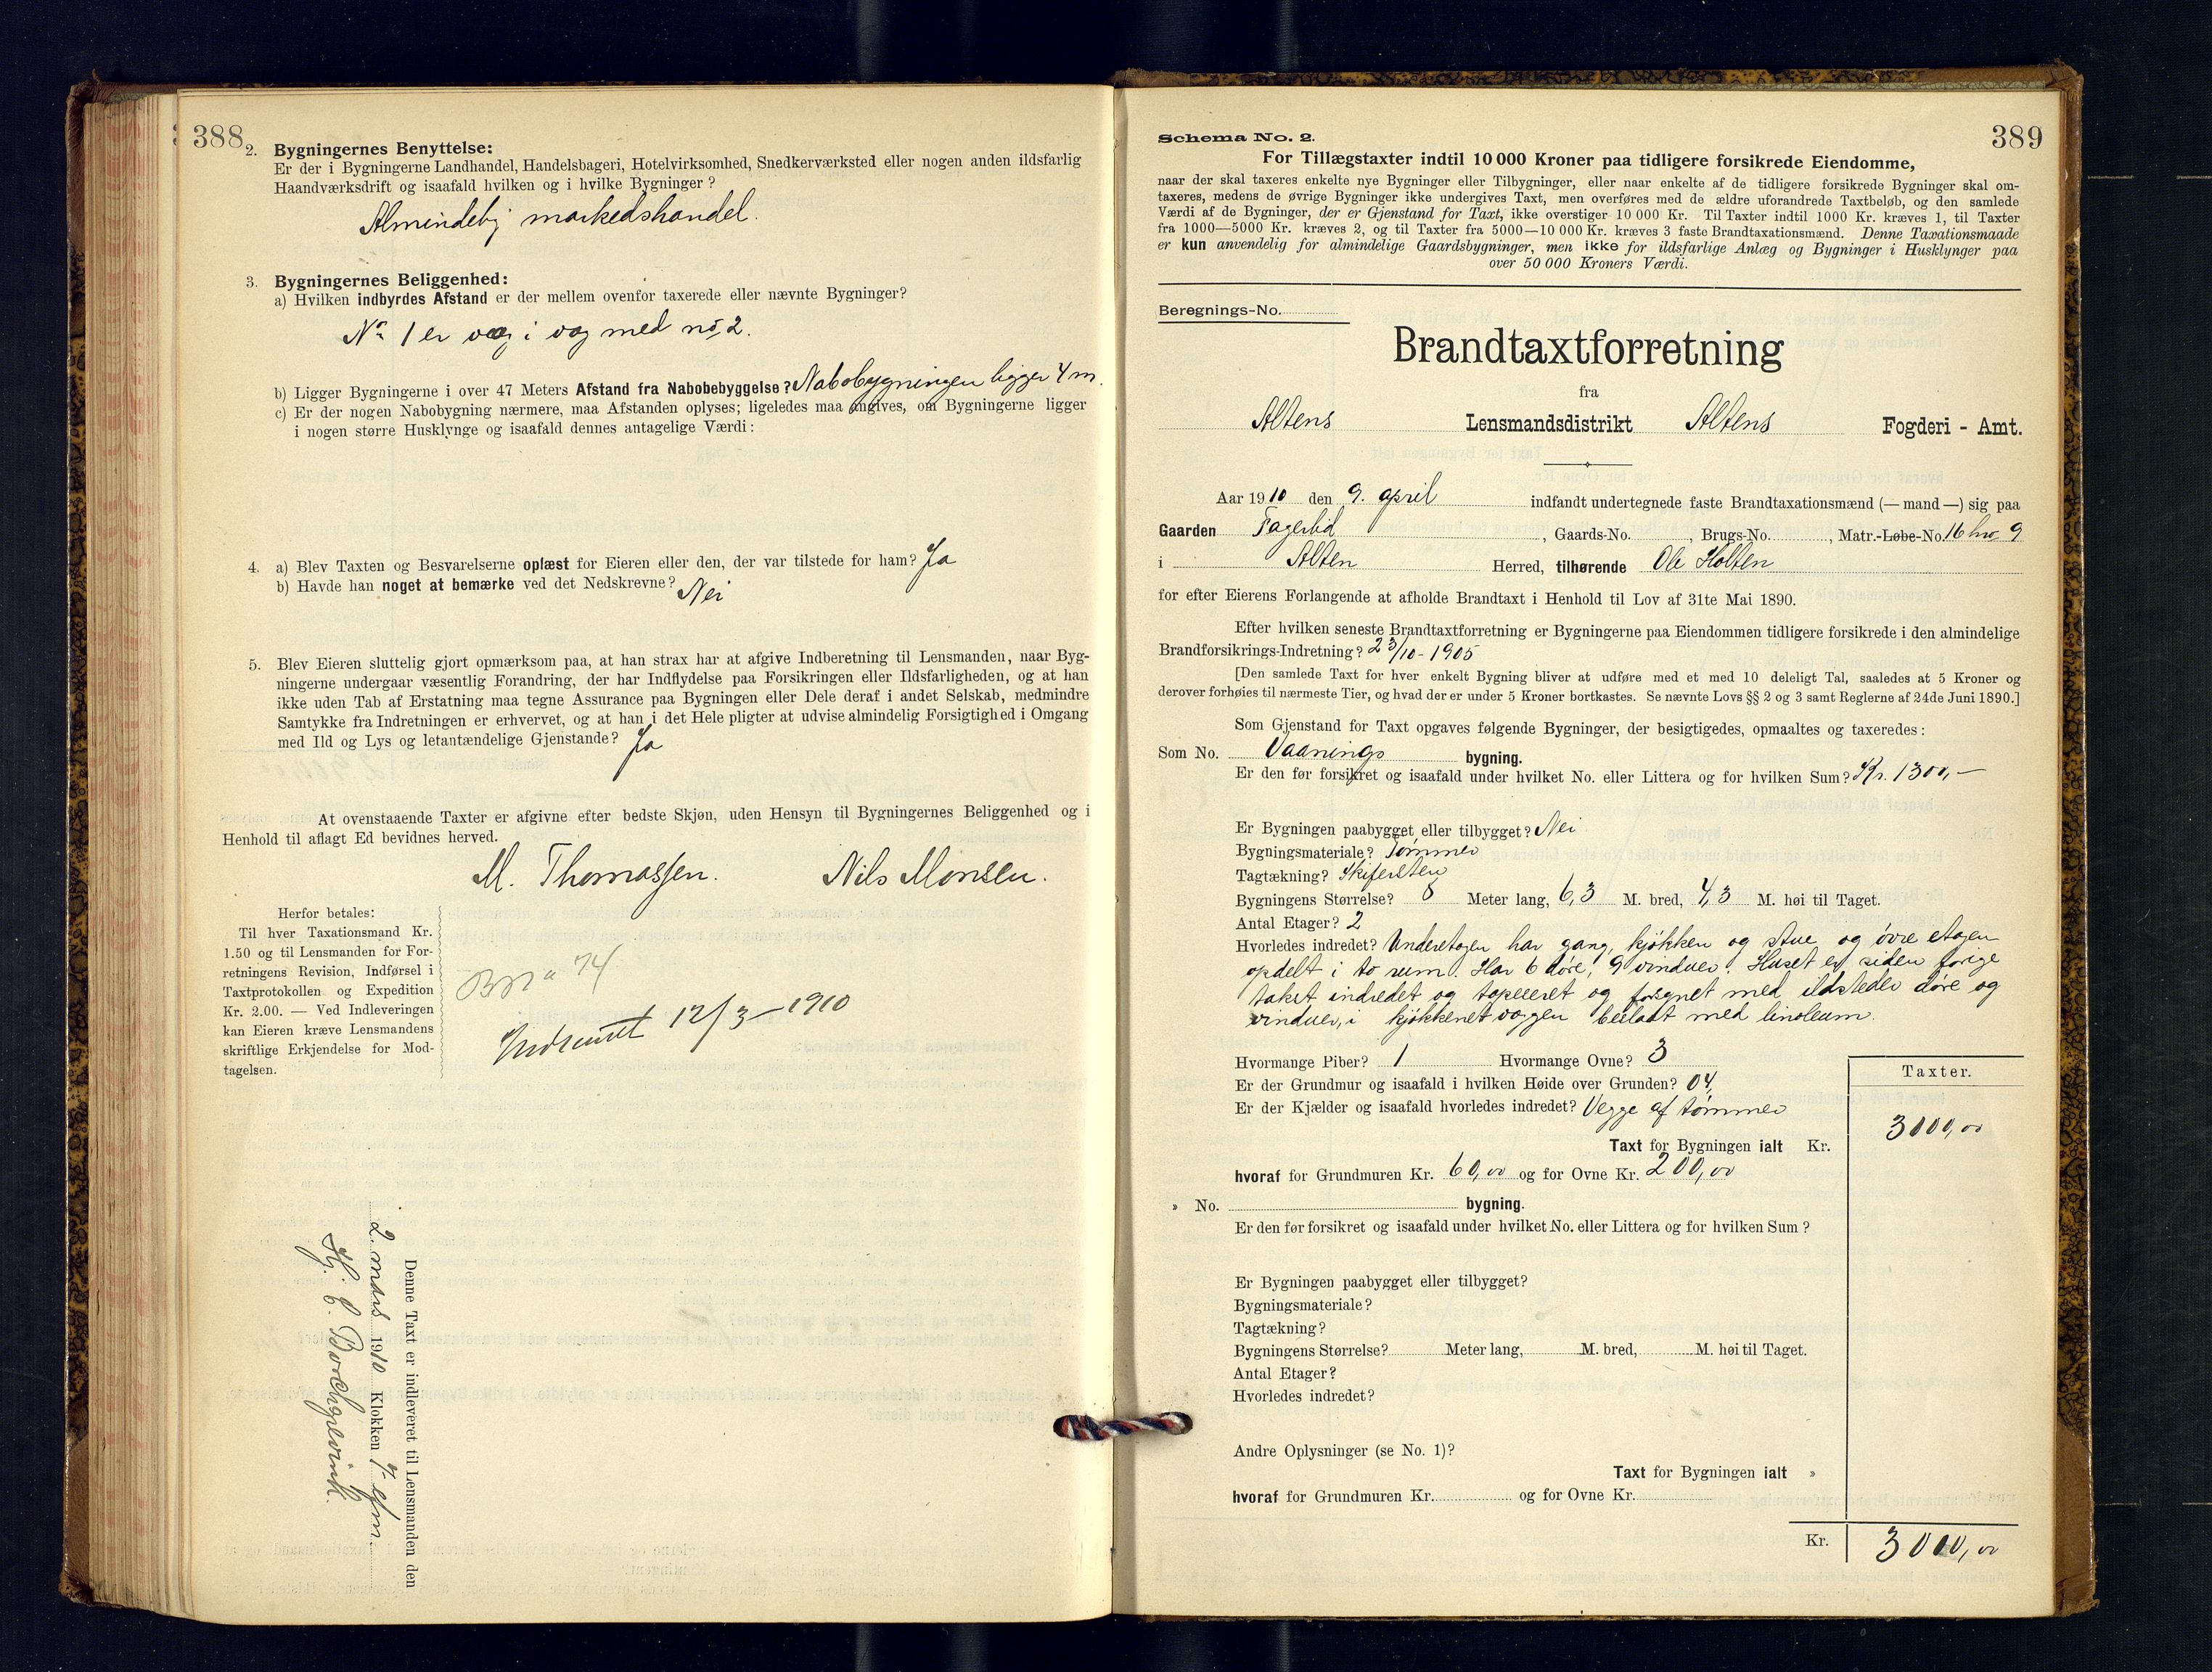 388
2. Bygningernes Benyttelse:
Er der i Bygningerne Landhandel, Handelsbageri, Hotelvirksomhed, Snedkerværksted eller nogen anden ildsfarlig
Haandværksdrift og isaafald hvilken og i hvilke Bygninger?
Almindelig markedshandel.
3. Bygningernes Beliggenhed:
a) Hvilken indbyrdes Afstand er der mellem ovenfor taxerede eller nævnte Bygninger?
No 1 er væg i væg med no 2.
b) Ligger Bygningerne i over 47 Meters Afstand fra Nabobebyggelse? Nabobygningen ligger 4 m.
c) Er der nogen Nabobygning nærmere, maa Afstanden oplyses; ligeledes maa angives, om Bygningerne ligger
i nogen større Husklynge og isaafald dennes antagelige Værdi:
4. a) Blev Taxten og Besvarelserne oplæst for Eieren eller den, der var tilstede for ham? Ja
b) Havde han noget at bemærke ved det Nedskrevne? Nei
5. Blev Eieren sluttelig gjort opmærksom paa, at han strax har at afgive Indberetning til Lensmanden, naar Byg-
ningerne undergaar væsentlig Forandring, der har Indflydelse paa Forsikringen eller Ildsfarligheden, og at han
ikke uden Tab af Erstatning maa tegne Assurance paa Bygningen eller Dele deraf i andet Selskab, medmindre
Samtykke fra Indretningen er erhvervet, og at han i det Hele pligter at udvise almindelig Forsigtighed i Omgang
med Ild og Lys og letantændelige Gjenstande? Ja
At ovenstaaende Taxter er afgivne efter bedste Skjøn, uden Hensyn til Bygningernes Beliggenhed og i
Henhold til aflagt Ed bevidnes herved.
M. Thomassen. Nils Monsen.
Herfor betales:
Til hver Taxationsmand Kr.
1.50 og til Lensmanden for For-
retningens Revision, Indførsel i
Taxtprotokollen og Expedition
Kr. 2.00. — Ved Indleveringen
kan Eieren kræve Lensmandens
skriftlige Erkjendelse for Mod-
tagelsen.
74
Indsendt 12/3-1910
Denne Taxt er indleveret til Lensmanden den
2. mars 1910 Klokken 7 efm.
Hj. C. Borchgrevink.
389
Schema No. 2.
For Tillægstaxter indtil 10 000 Kroner paa tidligere forsikrede Eiendomme,
naar der skal taxeres enkelte nye Bygninger eller Tilbygninger, eller naar enkelte af de tidligere forsikrede Bygninger skal om-
taxeres, medens de øvrige Bygninger ikke undergives Taxt, men overføres med de ældre uforandrede Taxtbeløb, og den samlede
Værdi af de Bygninger, der er Gjenstand for Taxt, ikke overstiger 10 000 Kr. Til Taxter indtil 1000 Kr. kræves 1, til Taxter
fra 1000—5000 Kr. kræves 2, og til Taxter fra 5000—10 000 Kr. kræves 3 faste Brandtaxationsmænd. Denne Taxationsmaade
er kun anvendelig for almindelige Gaardsbygninger, men ikke for ildsfarlige Anlæg og Bygninger i Husklynger paa
over 50 000 Kroners Værdi.
Beregnings-No.
Brandtaxtforretning
fra
Altens Lensmandsdistrikt Altens Fogderi - Amt.
Aar 1910 den 9. april indfandt undertegnede faste Brandtaxationsmænd (— mand —) sig paa
Gaarden Fagerlid, Gaards-No., Brugs-No., Matr.-Løbe-No. 16 bno 9
i Alten Herred, tilhørende Ole Holten
for efter Eierens Forlangende at afholde Brandtaxt i Henhold til Lov af 31te Mai 1890.
Efter hvilken seneste Brandtaxtforretning er Bygningerne paa Eiendommen tidligere forsikrede i den almindelige
Brandforsikrings-Indretning? 23/10-1905
[Den samlede Taxt for hver enkelt Bygning bliver at udføre med et med 10 deleligt Tal, saaledes at 5 Kroner og
derover forhøies til nærmeste Tier, og hvad der er under 5 Kroner bortkastes. Se nævnte Lovs §§ 2 og 3 samt Reglerne af 24de Juni 1890.]
Som Gjenstand for Taxt opgaves følgende Bygninger, der besigtigedes, opmaaltes og taxeredes:
Som No. Vaanings bygning.
Er den før forsikret og isaafald under hvilket No. eller Littera og for hvilken Sum? Kr. 1300,—
Er Bygningen paabygget eller tilbygget? Nei
Bygningsmateriale? Tømmer
Tagtækning? Skifersten
Bygningens Størrelse? 8 Meter lang, 6,3 M. bred, 4,3 M. høi til Taget.
Antal Etager? 2
Hvorledes indredet? Underetagen har gang, kjøkken og stue og øvre etagen
opdelt i to rum. Har 6 døre, 9 vinduer. Huset er siden forige
takst indredet og tapeseret og forsynet med ildsteder døre og
vinduer, i kjøkkenet væggen beklædt med linoleum.
Hvormange Piber? 1 Hvormange Ovne? 3
Er der Grundmur og isaafald i hvilken Høide over Grunden? 04,
Er der Kjælder og isaafald hvorledes indredet? Vegge af tømmer
Taxter.
Taxt for Bygningen ialt Kr. 3000,00
hvoraf for Grundmuren Kr. 60,00 og for Ovne Kr. 200,00
» No. bygning.
Er den før forsikret og isaafald under hvilket No. eller Littera og for hvilken Sum?
Er Bygningen paabygget eller tilbygget?
Bygningsmateriale?
Tagtækning?
Bygningens Størrelse? Meter lang, M. bred, M. høi til Taget.
Antal Etager?
Hvorledes indredet?
Andre Oplysninger (se No. 1)?
Taxt for Bygningen ialt »
hvoraf for Grundmuren Kr. og for Ovne Kr.
Kr. 3000,00